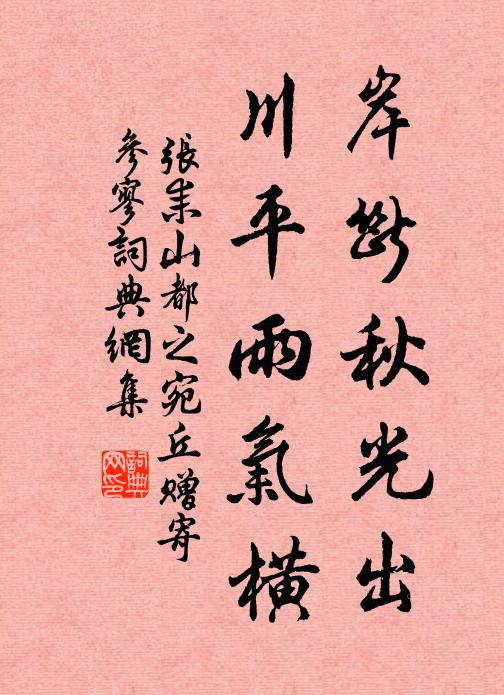 岸断秋光出
川平雨氣橫
張耒山都之宛丘贈寄
參寥詞典網集
詞典
网印